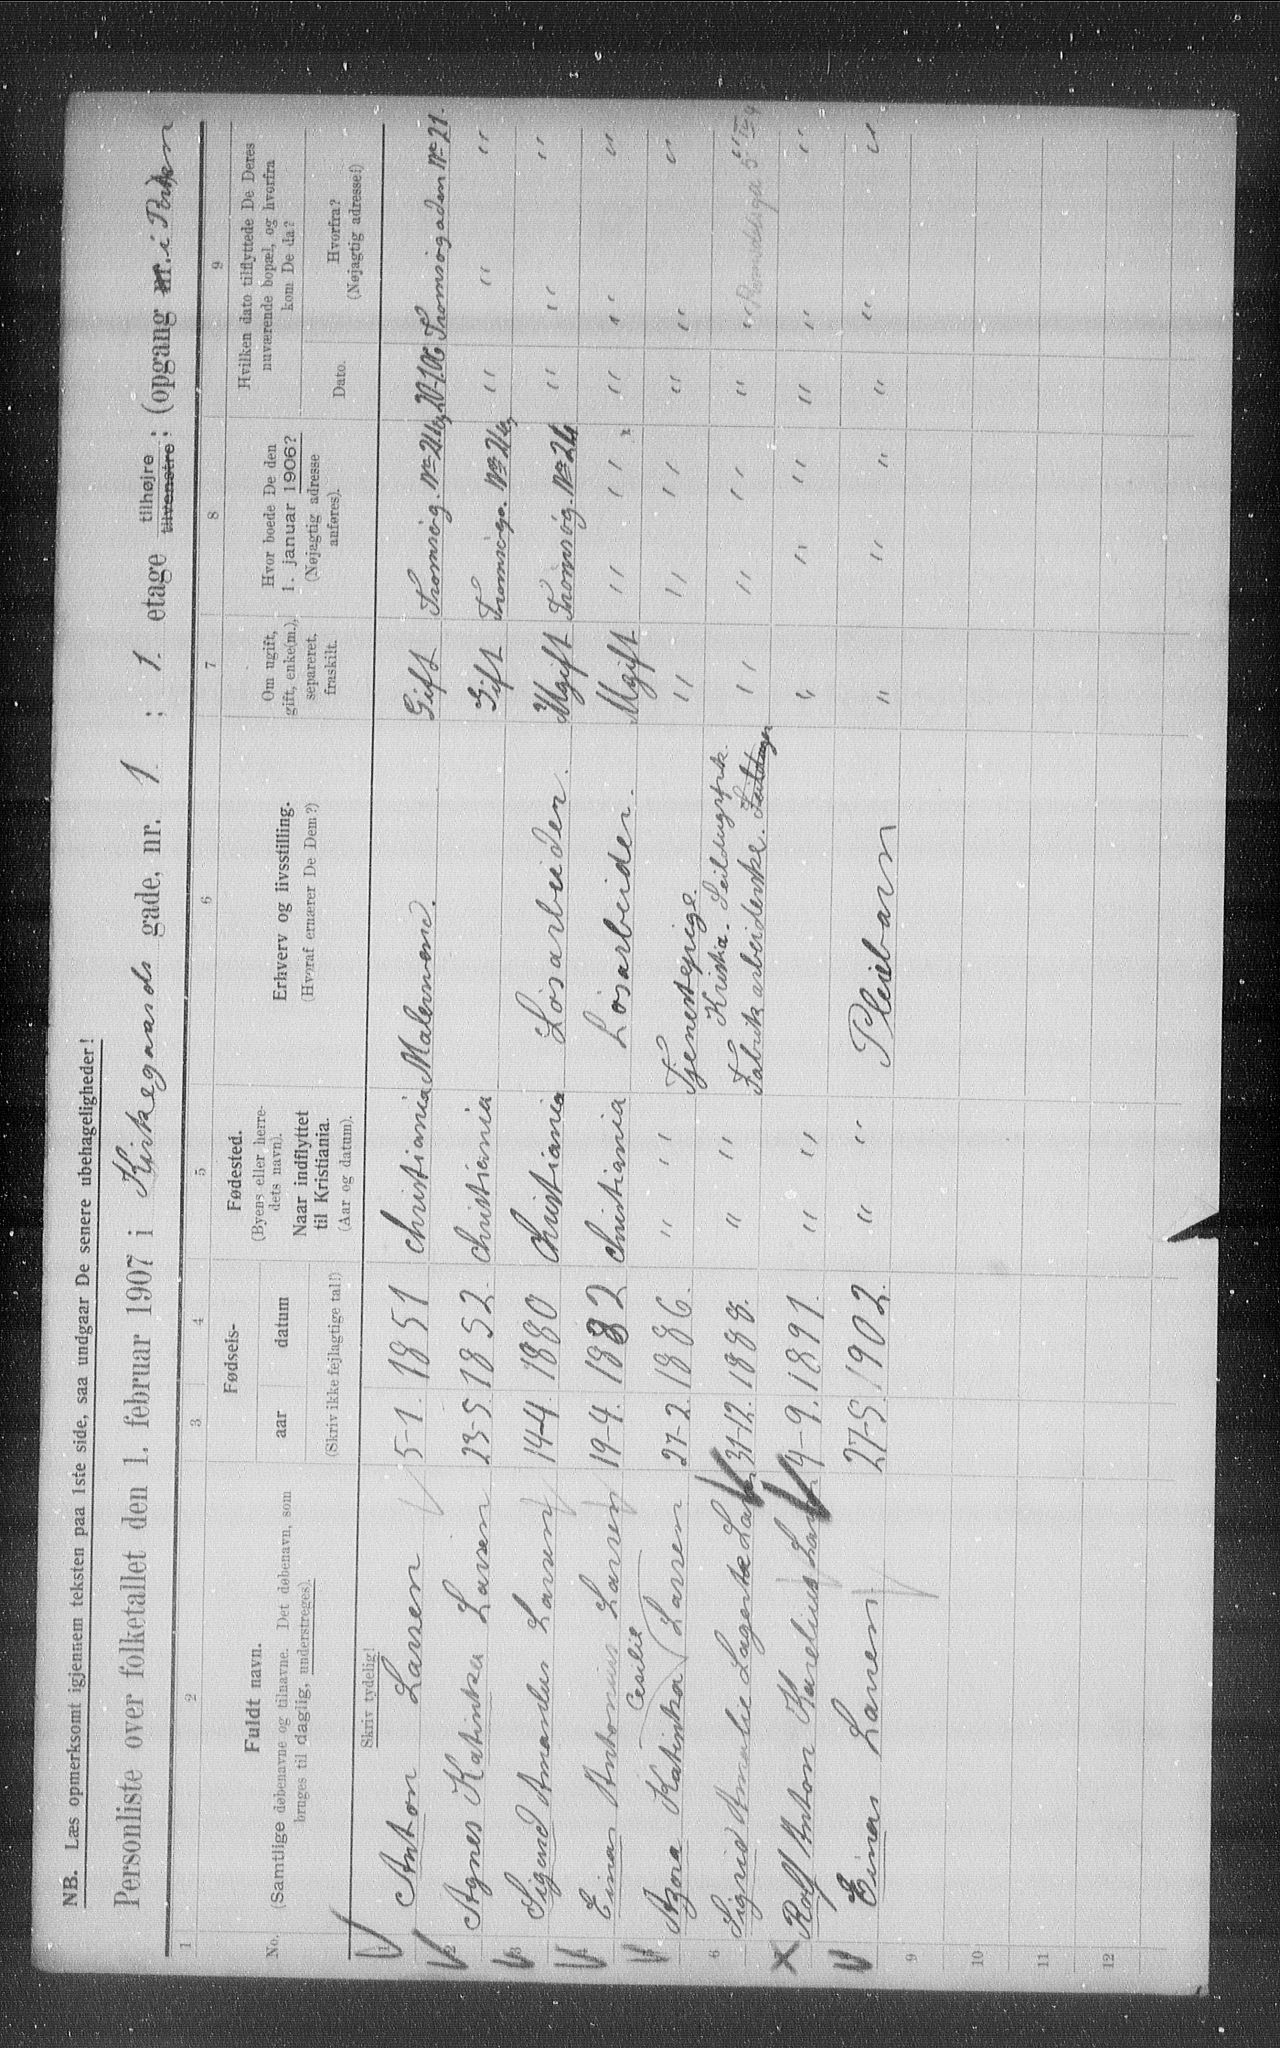 NB. Læs opmerksomt igjennem teksten paa 1ste side, saa undgaar De senere ubehageligheder!
Personliste over folketallet den 1. februar 1907 i Kirkegaards gade, nr. 1 ; 1. etage tilhøjre tilvenstre ; (opgang nr. i Porten
1 2 3 4 5 6 7 8 9
No.
Fuldt navn.
(Samtlige døbenavne og tilnavne. Det døbenavn, som
bruges til daglig, understreges).
Fødsels-
aar datum
Fødested.
(Byens eller herre-
dets navn).
Naar indflyttet
til Kristiania.
(Aar og datum).
Erhverv og livsstilling.
(Hvoraf ernærer De Dem?)
Om ugift,
gift, enke(m.),
separeret,
fraskilt.
Hvor boede De den
1. januar 1906?
(Nøjagtig adresse
anføres).
Hvilken dato tilflyttede De Deres
nuværende bopæl, og hvorfra
kom De da?
Dato.
Hvorfra?
(Nøjagtig adresse!)
Skriv tydelig!
(Skriv ikke fejlagtige tal!)
1 Anton Larsen 5-1. 1851 Christiania Malermand. Gift Tromsøg. No 24, 20-106 Tromsøgaden No 21.
2 Agnes Katinka Larsen 23-5. 1852. Christiania Gift Tromsøg. No 24, " " "
3 Sigurd Amandus Larsen 14-4. 1880 Christiania Løsarbeider. Ugift Tromsøg. No 24 " " "
4 Einar Antonius Larsen 19-4. 1882 Christiania Løsarbeider. Ugift " " " " "
Cesilie
5 Agora Katinka Larsen 27-2. 1886. " " Tjenestepige. " " " " " "
Kristia. Seildugsfbk.
6 Sigrid Amalie Lagerta Larsen 31-12. 1888. " " Fabrikarbeiderske. Seildugs " " " " " " Romsdalsga 5
Rolf Anton Karelius Larsen 4-9. 1891. " " " " " " " "
Einar Larsen 27-5. 1902. " " Pleiebarn " " " " " "
9
10
11
12